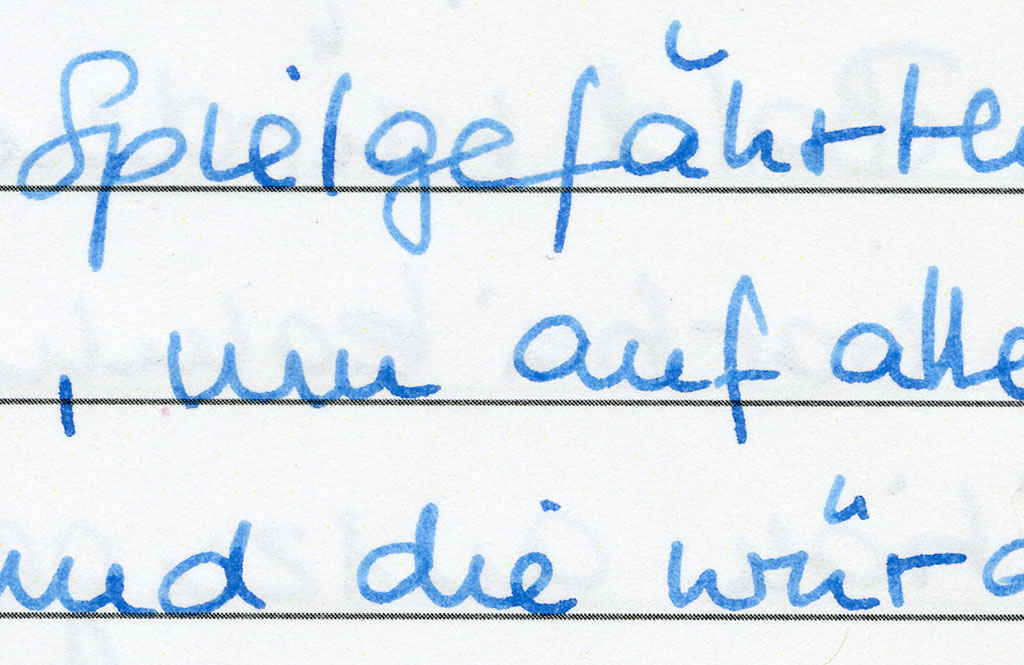 Spielgefährte
, um auf alle
und die würd